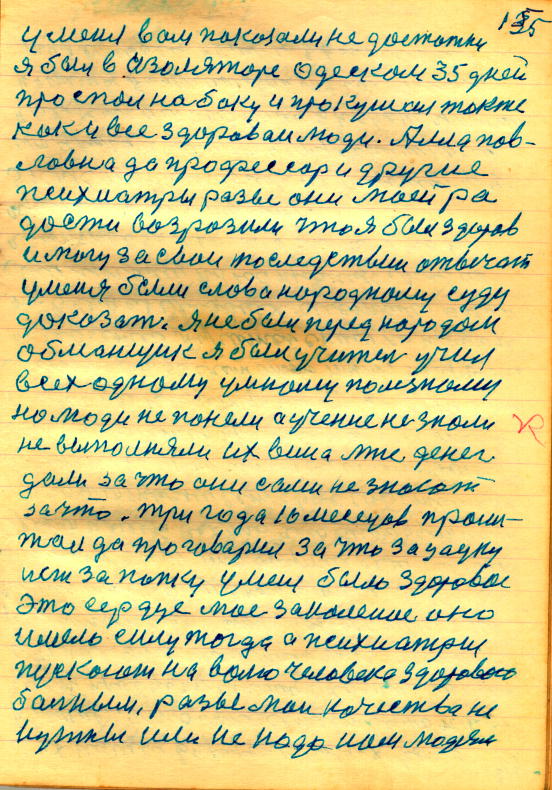 135
у меня вам показали не достатки
я был в изоляторе Одеском 35 дней
проспал на боку и прокушал также
как и все здоровыи люди. Алла пав-
ловна да профессор и другие
психиатры разве они моей ра
дости возрозили что я был здоров
и могу за свои последствии отвечать
у меня были слова народному суду
доказать. Я не был перед народом
обманщик я был учител учил
всех одному умному полезному
но люди не понели а учение не знали
не выполняли их вина мне денег
дали за что они сами не знают
за что. три года 10 месецов прочи-
тал да проговарил за что за
или за у меня было здоровое
это сердце мое заколеное оно
имело силу тогда а психиатры
пускают на волю человека здорового
балным, разве мои качества не
нужны или не надо нам людям